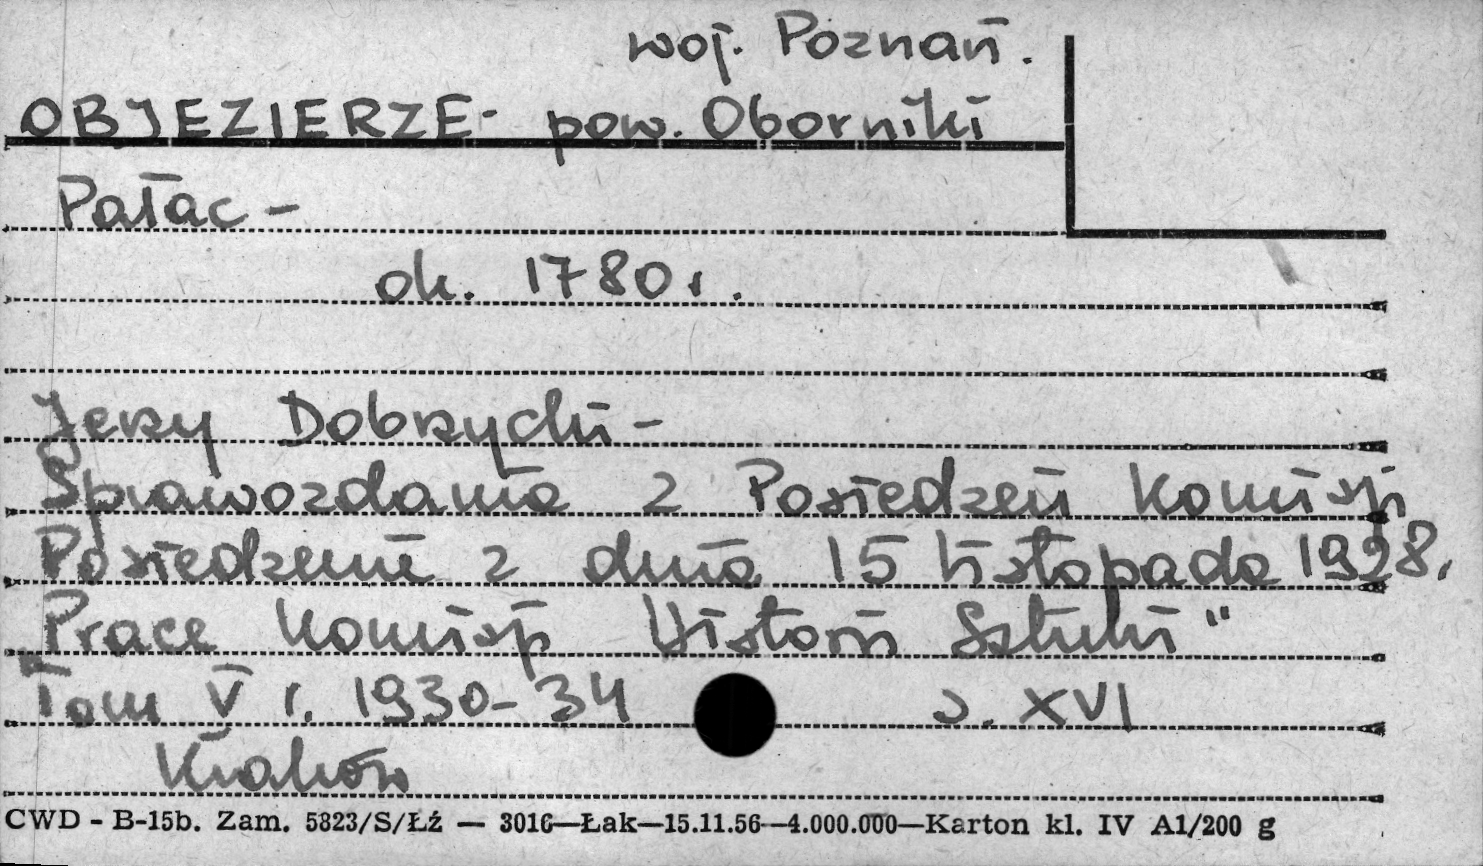 woj. Poznań.
OBJEZIERZE - pow. Oborniki
Pałac -
ok. 1780 r.
Jerzy Dobrzycki -
Sprawozdania z Posiedzeń Komisji
Posiedzenie z dnia 15 listopada 1928.
"Prace Komisji Historii Sztuki"
Tom V r. 1930-34 s. XVI
Kraków
CWD - B-15b. Zam. 5823/S/Łź — 3016—Łak—15.11.56—4.000.000—Karton kl. IV A1/200 g